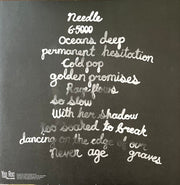 Needle
6-5000
Oceans deep
permanent hesitation
Cold pop
golden promises
flows
so slow
With her shadow
too scared to break
dancing on the edge of our
graves
Never age